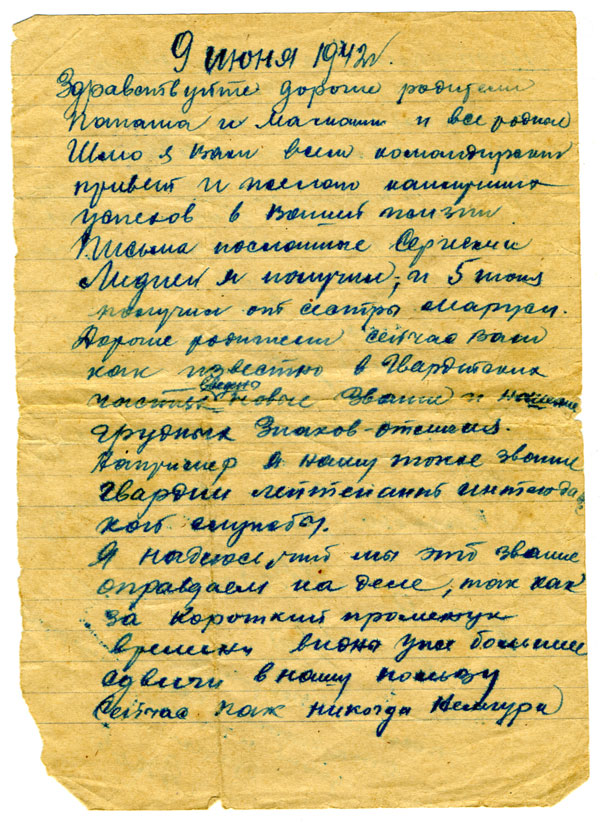 9 июня 1942г.
Здравствуйте дорогие родители
Папаша и Мамаша и все родные
Шлю я Вам всем командирский
привет и желаю наилучших
успехов в Вашей жизни.
Письма посланные Сергеем и
Лидией я получил, и 5 июня
получил от сестры Маруси.
Дорогие родители сейчас Вам
как известно в Гвардейских
частях введены новые Звания и
грудных Знаков-отличия.
Например я ношу такое звание
Гвардии лейтенант интенда
кой службы.
Я надеюсь, что мы это звание
оправдаем на деле, так как
за короткий промежук
времени видны уже большие
сдвиги в нашу пользу
Сейчас как никогда